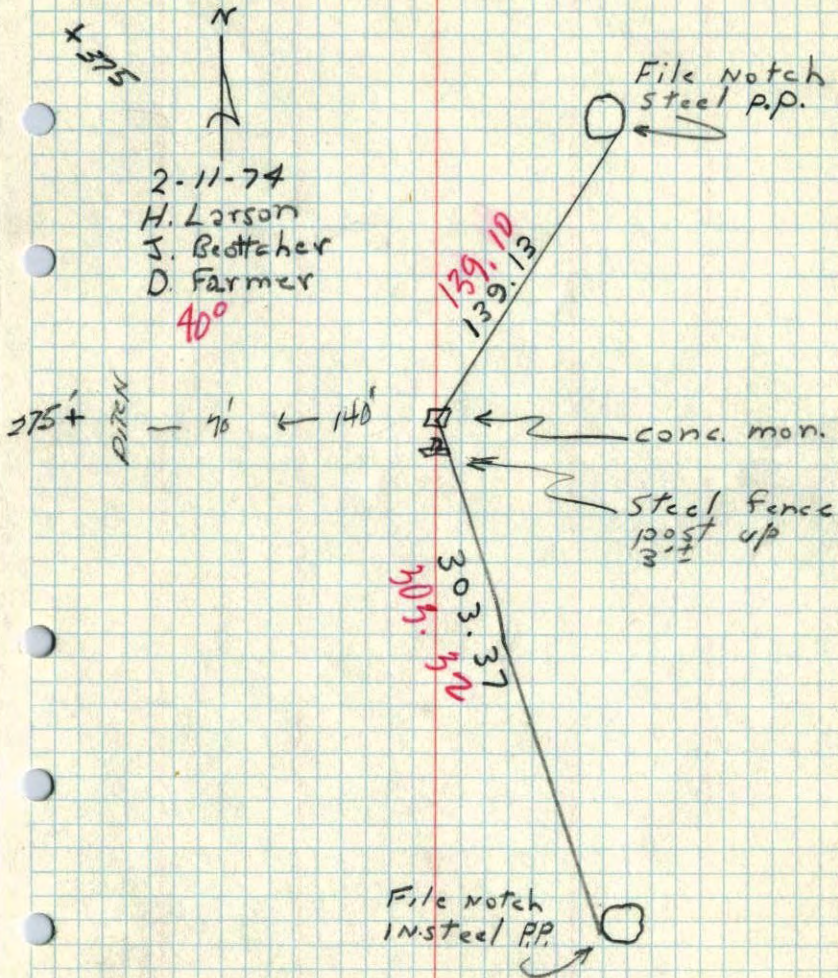 N
x 375
File Notch
Steel P.P.
2-11-74
H. Larson
J. Beottcher
D. Farmer
40°
139.10
139.13
275'± DITCH — 70' ← 140'
conc. mon.
Steel fence
post up
3'±
303.37
303.32
File Notch
IN steel P.P.